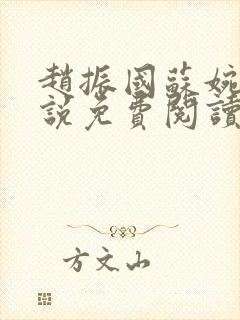 趙振國蘇婉
說免費閱讀
方文山